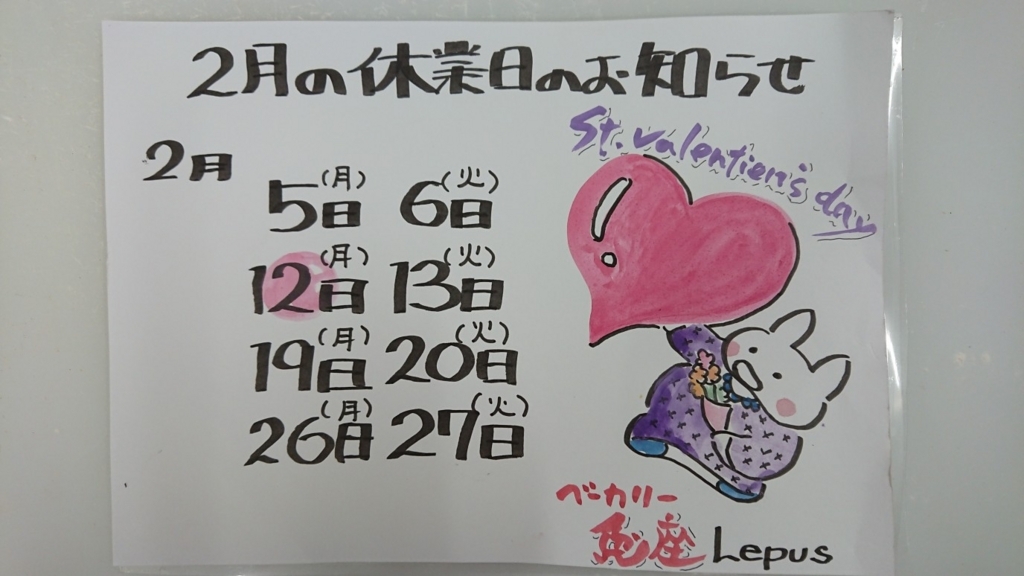 2月の休業日のお知らせ
St. valentien's day
2月
5日(月) 6日(火)
12日(月) 13日(火)
19日(月) 20日(火)
26日(月) 27日(火)
ベーカリー
兎座 Lepus